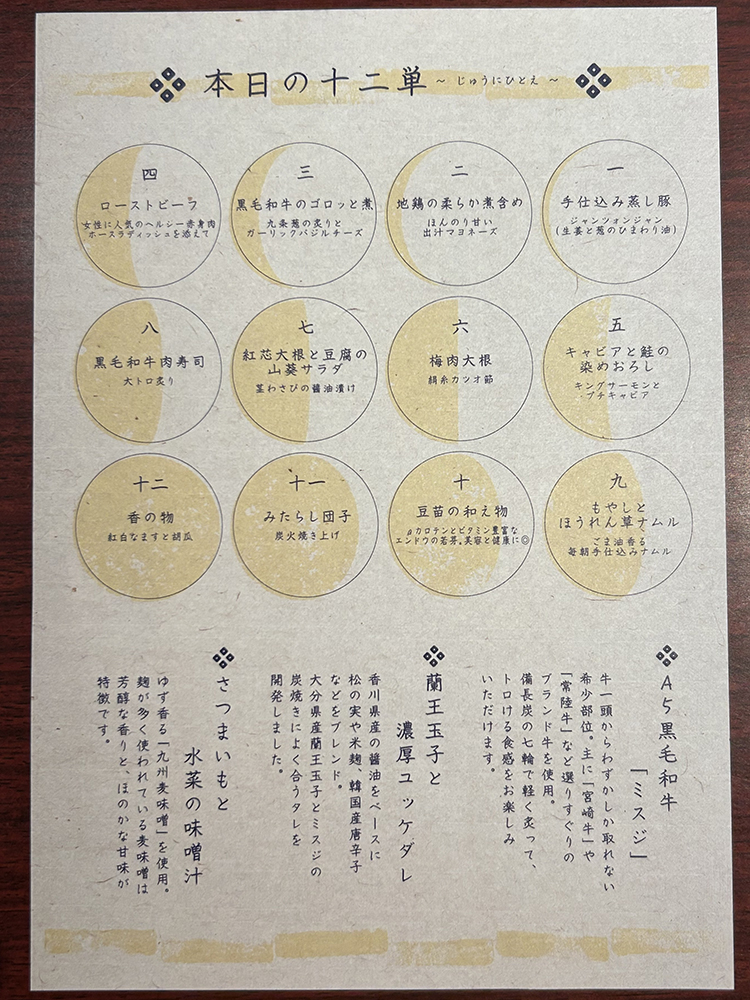 本日の十二単 ～ じゅうにひとえ ～
一
手仕込み蒸し豚
ジャンツォンジャン
(生姜と葱のひまわり油)
二
地鶏の柔らか煮含め
ほんのり甘い
出汁マヨネーズ
三
黒毛和牛のゴロッと煮
九条葱の炙りと
ガーリックバジルチーズ
四
ローストビーフ
女性に人気のヘルシー赤身肉
ホースラディッシュを添えて
五
キャビアと鮭の
染めおろし
キングサーモンと
プチキャビア
六
梅肉大根
絹糸カツオ節
七
紅芯大根と豆腐の
山葵サラダ
茎わさびの醤油漬け
八
黒毛和牛肉寿司
大トロ炙り
九
もやしと
ほうれん草ナムル
ごま油香る
毎朝手仕込みナムル
十
豆苗の和え物
βカロテンとビタミン豊富な
エンドウの若芽。美容と健康に◎
十一
みたらし団子
炭火焼き上げ
十二
香の物
紅白なますと胡瓜
A5黒毛和牛
「ミスジ」
牛一頭からわずかしか取れない
希少部位。主に「宮崎牛」や
「常陸牛」など選りすぐりの
ブランド牛を使用。
備長炭の七輪で軽く炙って、
トロける食感をお楽しみ
いただけます。
蘭王玉子と
濃厚ユッケダレ
香川県産の醤油をベースに
松の実や米麹、韓国産唐辛子
などをブレンド。
大分県産蘭王玉子とミスジの
炭焼きによく合うタレを
開発しました。
さつまいもと
水菜の味噌汁
ゆず香る「九州麦味噌」を使用。
麹が多く使われている麦味噌は
芳醇な香りと、ほのかな甘味が
特徴です。